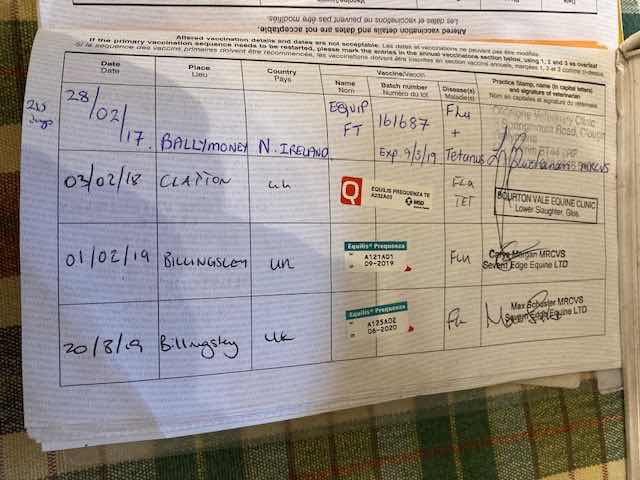 Les dates et vaccinations ne peuvent pas être modifiés.
Altered vaccination details and dates are not acceptable.
Altered vaccination details and dates are not acceptable. Les dates et vaccinations ne peuvent pas être modifiés.
If the primary vaccination sequence needs to be restarted, please mark the entries in the annual vaccinations section below, using 1, 2 and 3 as overleaf
Date
Date
Place
Lieu
Country
Pays
Vaccine/Vaccin
Name
Nom
Batch number
Numéro du lot
Disease(s)
Maladie(s)
Practice stamp, name (in capital letters)
and signature of veterinarian
Nom en capitales et signature du vétérinaire
28/02/17.
BALLYMONEY
N. IRELAND
EQUIP
FT
161687
Exp 9/5/19
Flu
+
Tetanus
Veterinary Clinic
Road,
MRCVS
03/02/18
CLAPTON
UK
Q
EQUILIS PREQUENZA TE
A232A03
MSD
Flu
TET
BOURTON VALE EQUINE CLINIC
Lower Slaughter, Glos.
01/02/19
BILLINGSLEY
UK
Equilis® Prequenza
A121A01
09-2019
Flu
Carys Morgan MRCVS
Severn Edge Equine LTD
20/8/19
Billingsley
UK
Equilis® Prequenza
A125A02
06-2020
Flu
Max Schuster MRCVS
Severn Edge Equine LTD